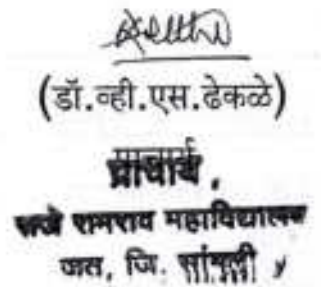 (डॉ.व्ही.एस.ढेकळे)
प्राचार्य
प्राचार्य,
राजे रामराव महाविद्यालय
जत, जि. सांगली